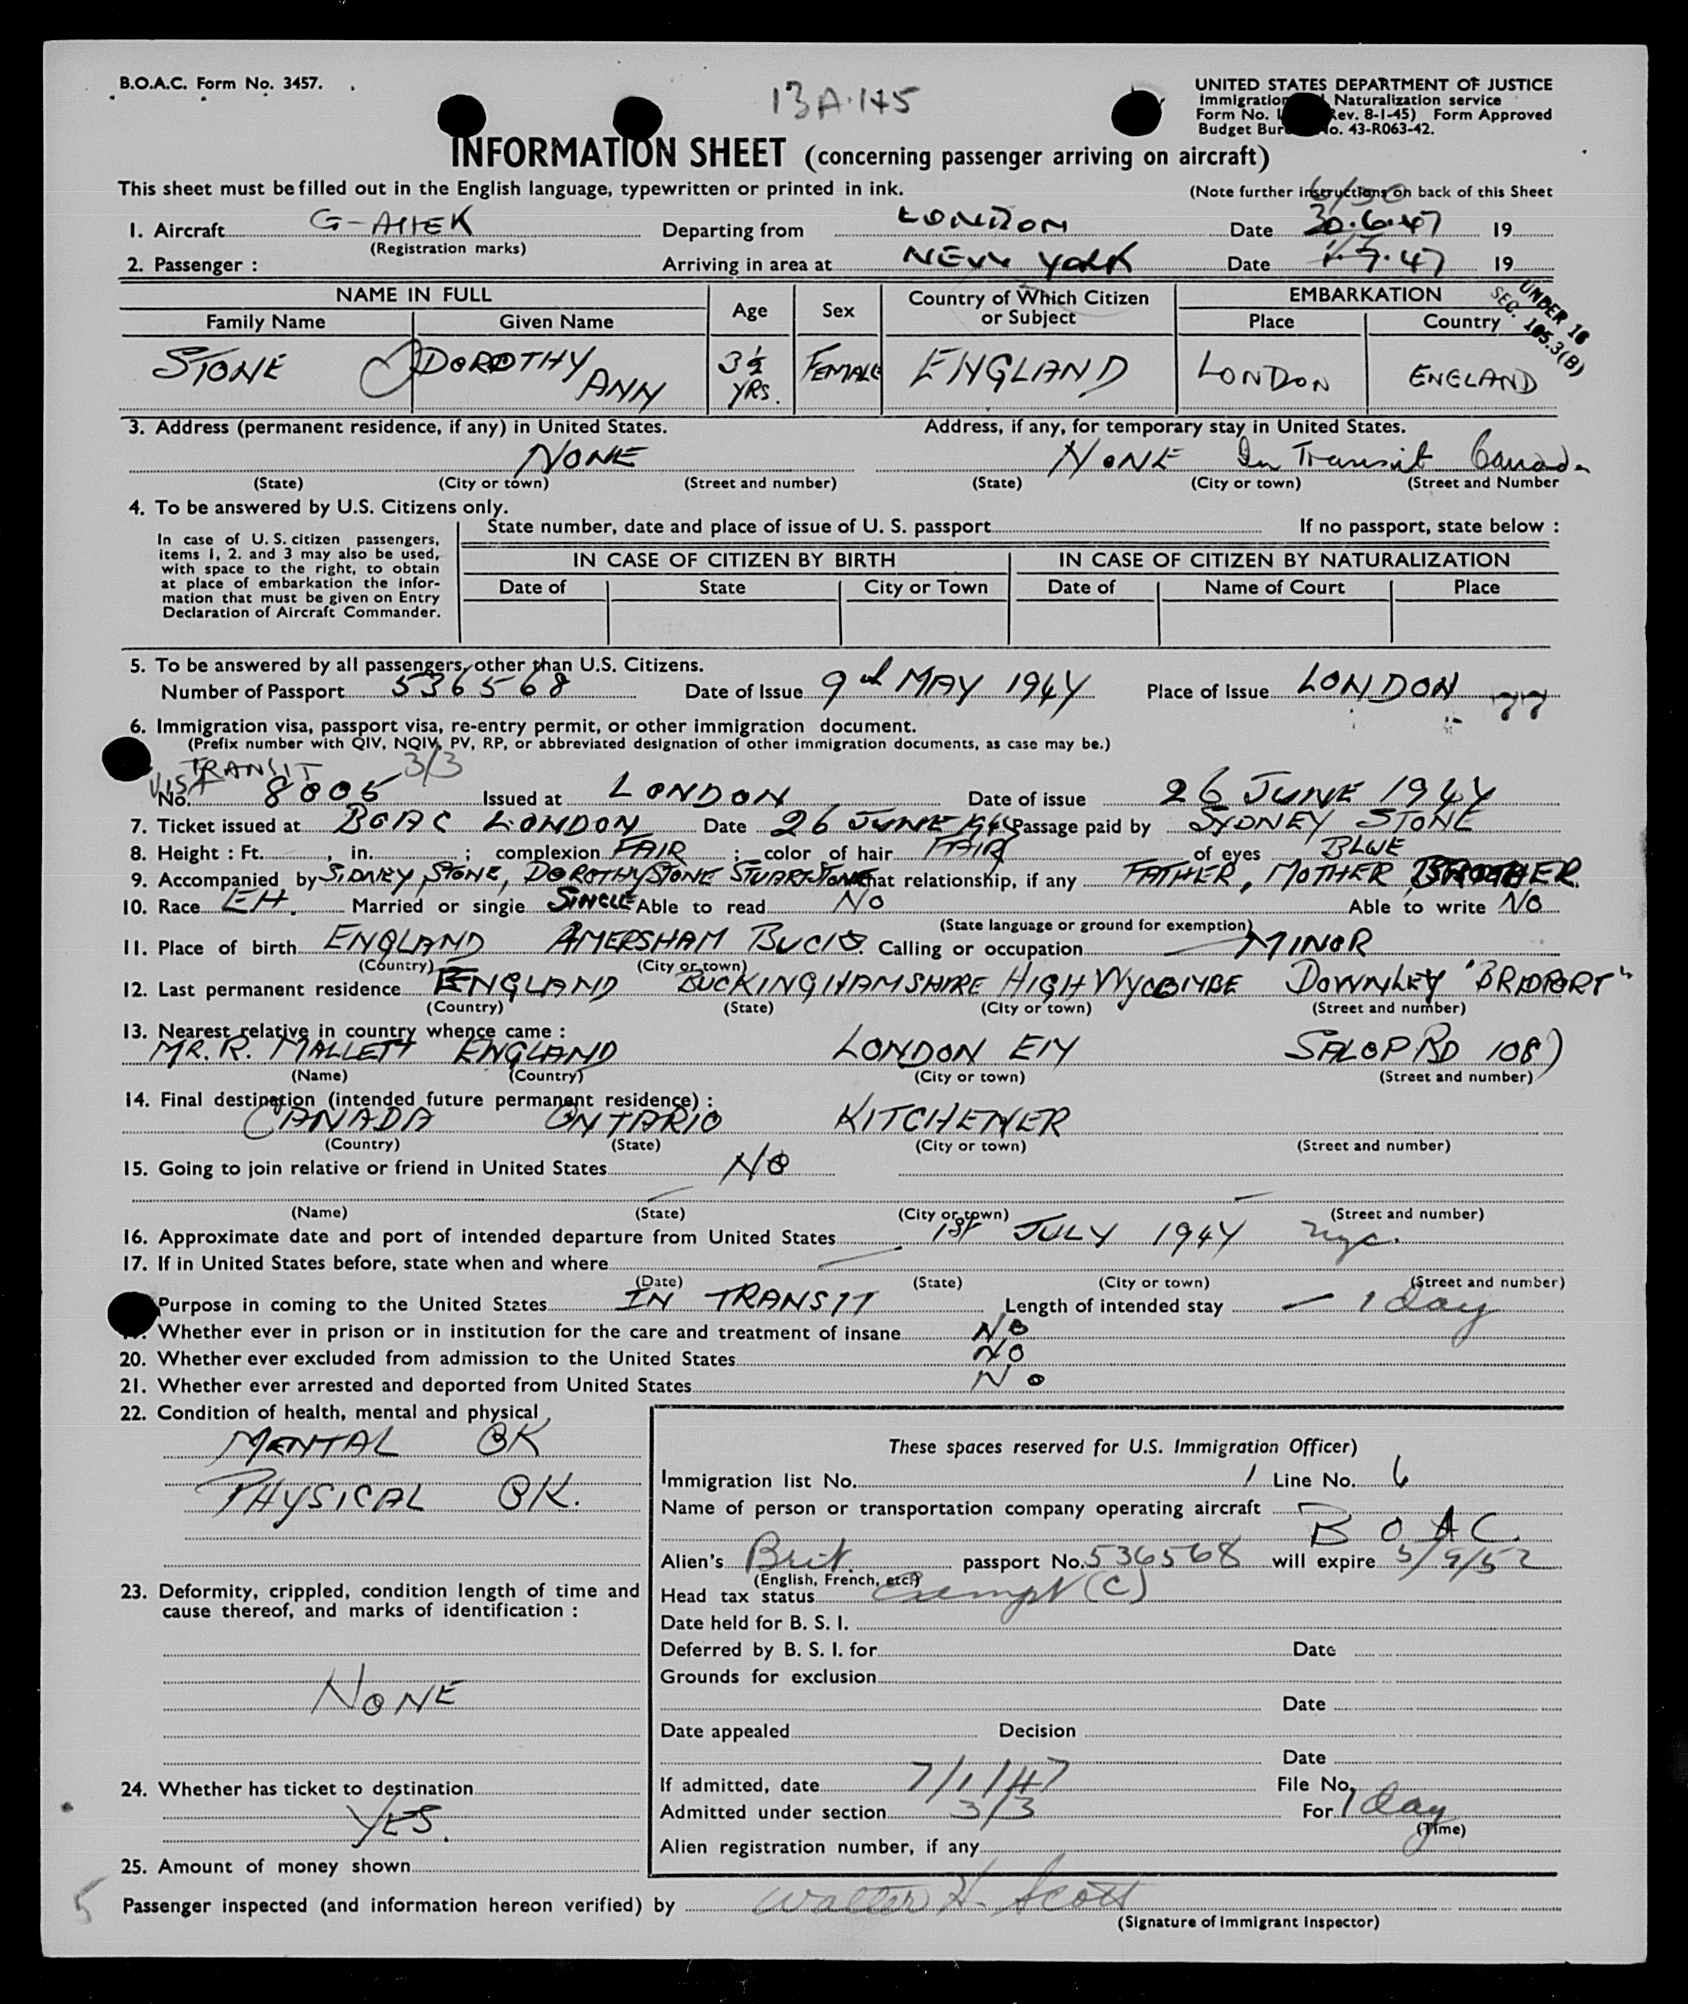 B.O.A.C. Form No. 3457.
13A.145
UNITED STATES DEPARTMENT OF JUSTICE
Immigration Naturalization service
Form No. Rev. 8-1-45) Form Approved
Budget No. 43-R063-42.
INFORMATION SHEET (concerning passenger arriving on aircraft)
This sheet must be filled out in the English language, typewritten or printed in ink. (Note further instructions on back of this Sheet
6/30
1. Aircraft Departing from LONDON Date 30.6.47 19
(Registration marks)
2. Passenger : Arriving in area at NEW YORK Date 1.7.47 19
NAME IN FULL Age Sex Country of Which Citizen or Subject EMBARKATION
Family Name Given Name Place Country
UNDER 16
SEC. 105.3(B)
STONE DOROTHY ANN 3½ YRS. FEMALE ENGLAND LONDON ENGLAND
3. Address (permanent residence, if any) in United States. Address, if any, for temporary stay in United States.
NONE NONE In Transit Canada
(State) (City or town) (Street and number) (State) (City or town) (Street and Number
4. To be answered by U.S. Citizens only.
State number, date and place of issue of U. S. passport If no passport, state below :
In case of U. S. citizen passengers,
items 1, 2. and 3 may also be used,
with space to the right, to obtain
at place of embarkation the infor-
mation that must be given on Entry
Declaration of Aircraft Commander.
IN CASE OF CITIZEN BY BIRTH IN CASE OF CITIZEN BY NATURALIZATION
Date of State City or Town Date of Name of Court Place
5. To be answered by all passengers, other than U.S. Citizens.
Number of Passport 536568 Date of Issue 9th MAY 1947 Place of Issue LONDON
6. Immigration visa, passport visa, re-entry permit, or other immigration document.
(Prefix number with QIV, NQIV, PV, RP, or abbreviated designation of other immigration documents, as case may be.)
TRANSIT VISA 3/3
No. 8005 Issued at LONDON Date of issue 26 JUNE 1947
7. Ticket issued at BOAC LONDON Date 26 JUNE 1947 Passage paid by SYDNEY STONE
8. Height : Ft. , in. ; complexion FAIR ; color of hair FAIR of eyes BLUE
9. Accompanied by SIDNEY STONE, DOROTHY STONE STUART STONE what relationship, if any FATHER, MOTHER BROTHER
10. Race EH. Married or single SINGLE Able to read No Able to write No
(State language or ground for exemption)
11. Place of birth ENGLAND AMERSHAM BUCKS. Calling or occupation MINOR
(Country) (City or town)
12. Last permanent residence ENGLAND BUCKINGHAMSHIRE HIGH WYCOMBE DOWNLEY "BRIDPORT"
(Country) (State) (City or town) (Street and number)
13. Nearest relative in country whence came :
MR. R. MALLETT ENGLAND LONDON E17 SALOP RD 108)
(Name) (Country) (City or town) (Street and number)
14. Final destination (intended future permanent residence) :
CANADA ONTARIO KITCHENER
(Country) (State) (City or town) (Street and number)
15. Going to join relative or friend in United States NO
(Name) (State) (City or town) (Street and number)
16. Approximate date and port of intended departure from United States 1st JULY 1947 nyc.
17. If in United States before, state when and where
(Date) (State) (City or town) (Street and number)
Purpose in coming to the United States IN TRANSIT Length of intended stay – 1 day
Whether ever in prison or in institution for the care and treatment of insane NO
20. Whether ever excluded from admission to the United States NO
21. Whether ever arrested and deported from United States NO
22. Condition of health, mental and physical
MENTAL OK
PHYSICAL OK.
23. Deformity, crippled, condition length of time and
cause thereof, and marks of identification :
NONE
24. Whether has ticket to destination
YES.
25. Amount of money shown
These spaces reserved for U.S. Immigration Officer)
Immigration list No. 1 Line No. 6
Name of person or transportation company operating aircraft
B O A C.
Alien's Brit. passport No. 536568 will expire 5/9/52
(English, French, etc.)
Head tax status Exempt (C)
Date held for B. S. I.
Deferred by B. S. I. for Date
Grounds for exclusion
Date
Date appealed Decision
Date
If admitted, date 7/1/47 File No.
Admitted under section 3/3 For 1 day
(Time)
Alien registration number, if any
5
Passenger inspected (and information hereon verified) by Walter H. Scott
(Signature of Immigrant Inspector)